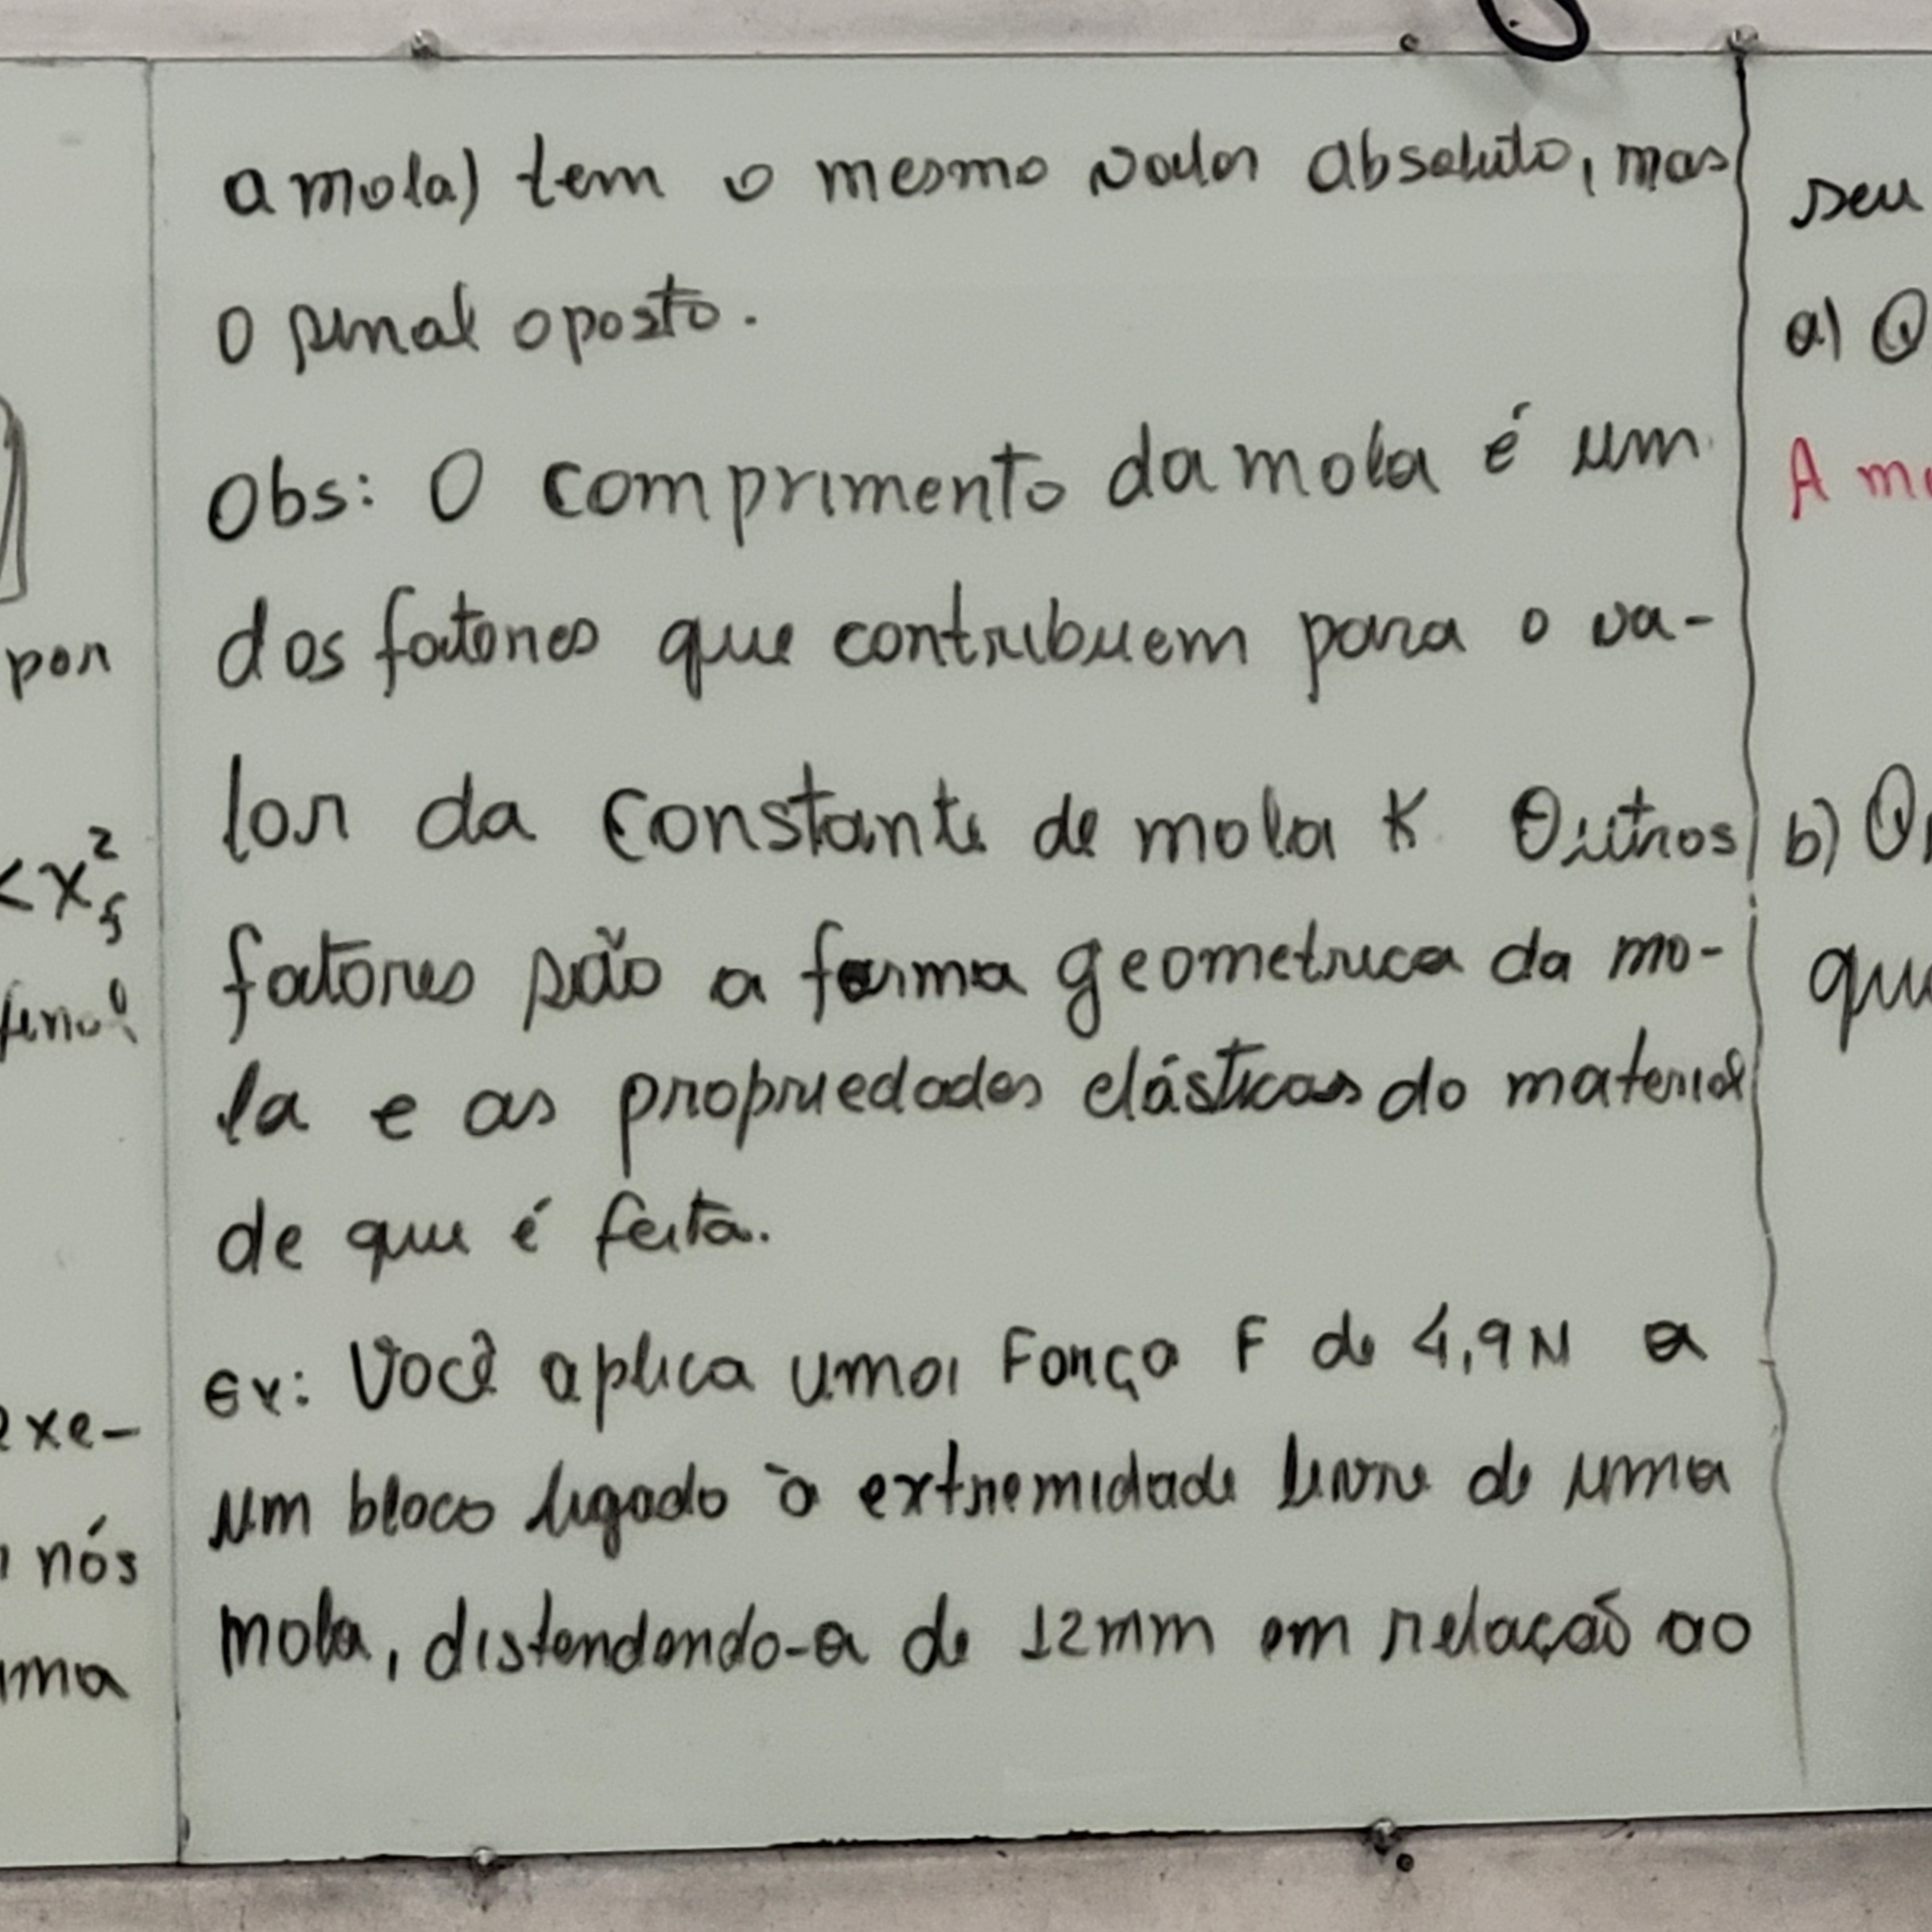 a mola) tem o mesmo valor absoluto, mas
o sinal oposto.
Obs: O comprimento da mola é um
dos fatores que contribuem para o va-
lor da constante de mola K. Outros
fatores são a forma geometrica da mo-
la e as propriedades elásticas do material
de que é feita.
Ex: Você aplica uma Força F de 4,9N a
um bloco ligado à extremidade livre de uma
mola, distendendo-a de 12mm em relação ao
por
xe-
nós
ma
seu
a) Q
A m
b) O
qu